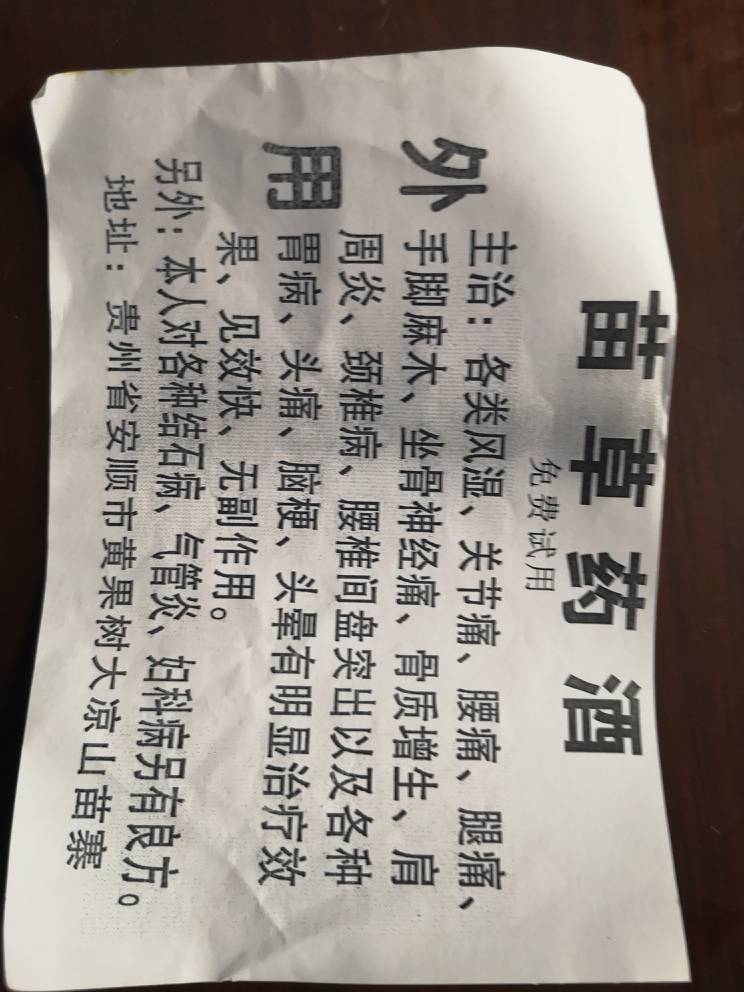 苗草药酒
免费试用
外用
主治：各类风湿、关节痛、腰痛、腿痛、
手脚麻木、坐骨神经痛、骨质增生、肩
周炎、颈椎病、腰椎间盘突出以及各种
胃病、头痛、脑梗、头晕有明显治疗效
果、见效快、无副作用。
另外：本人对各种结石病、气管炎、妇科病另有良方。
地址：贵州省安顺市黄果树大凉山苗寨